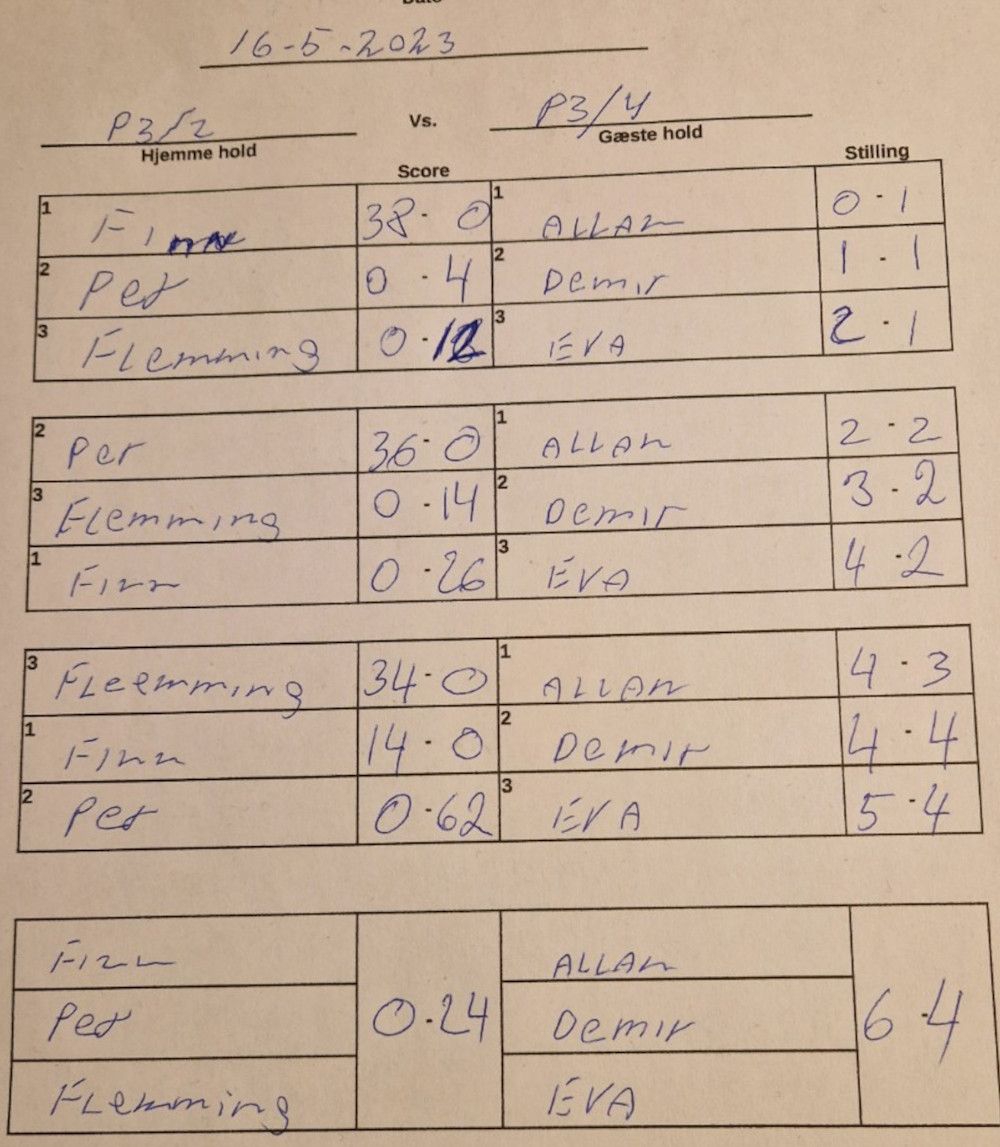 Date
16-5-2023
P3/2 Vs. P3/4
Hjemme hold Gæste hold
Score Stilling
1 Finn 38-0 1 ALLAN 0-1
2 Per 0-4 2 Demir 1-1
3 Flemming 0-12 3 EVA 2-1
2 Per 36-0 1 ALLAN 2-2
3 Flemming 0-14 2 Demir 3-2
1 Finn 0-26 3 EVA 4-2
3 Fleemming 34-0 1 ALLAN 4-3
1 Finn 14-0 2 Demir 4-4
2 Per 0-62 3 EVA 5-4
Finn ALLAN
Per 0-24 Demir 6-4
Flemming EVA